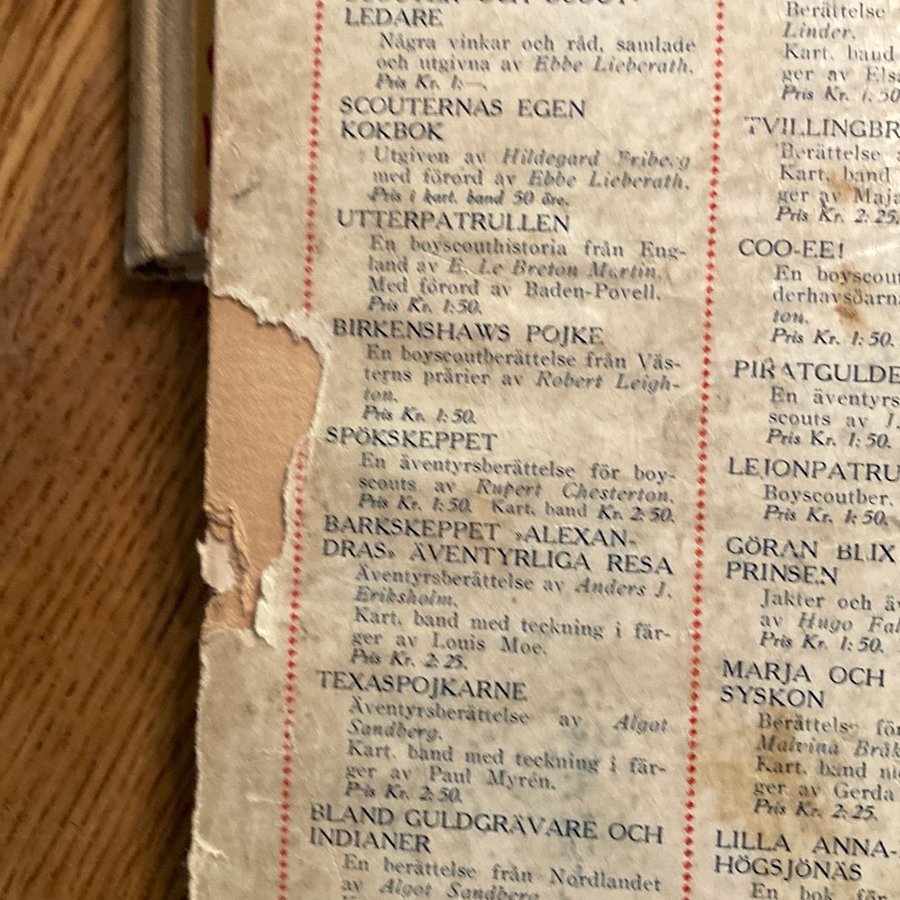 LEDARE
Några vinkar och råd, samlade
och utgivna av Ebbe Lieberath.
Pris Kr. 1:—.
SCOUTERNAS EGEN
KOKBOK
Utgiven av Hildegard Friberg
med förord av Ebbe Lieberath.
Pris i kart. band 50 öre.
UTTERPATRULLEN
En boyscouthistoria från Eng-
land av E. Le Breton Martin.
Med förord av Baden-Povell.
Pris Kr. 1:50.
BIRKENSHAWS POJKE
En boyscoutberättelse från Väs-
terns prärier av Robert Leigh-
ton.
Pris Kr. 1:50.
SPÖKSKEPPET
En äventyrsberättelse för boy-
scouts av Rupert Chesterton.
Pris Kr. 1:50. Kart. band Kr. 2:50.
BARKSKEPPET »ALEXAN-
DRAS» ÄVENTYRLIGA RESA
Äventyrsberättelse av Anders J.
Eriksholm.
Kart. band med teckning i fär-
ger av Louis Moe.
Pris Kr. 2:25.
TEXASPOJKARNE
Äventyrsberättelse av Algot
Sandberg.
Kart. band med teckning i fär-
ger av Paul Myrén.
Pris Kr. 2:50.
BLAND GULDGRÄVARE OCH
INDIANER
En berättelse från Nordlandet
av Algot Sandberg
Berättelse
Linder.
Kart. band
ger av Elsa
Pris Kr. 1:50
TVILLINGBR
Berättelse
Kart. band
ger av Maja
Pris Kr. 2:25.
COO-EE!
En boyscout
derhavsöarna
ton.
Pris Kr. 1:50.
PIRATGULDE
En äventyrs
scouts av J.
Pris Kr. 1:50.
LEJONPATRU
Boyscoutber.
Pris Kr. 1:50.
GÖRAN BLIX
PRINSEN
Jakter och äv
av Hugo Fal
Pris Kr. 1:50.
MARJA OCH
SYSKON
Berättelse för
Malvina Bråk
Kart. band me
ger av Gerda
Pris Kr. 2:25.
LILLA ANNA-
HÖGSJÖNÄS
En bok för